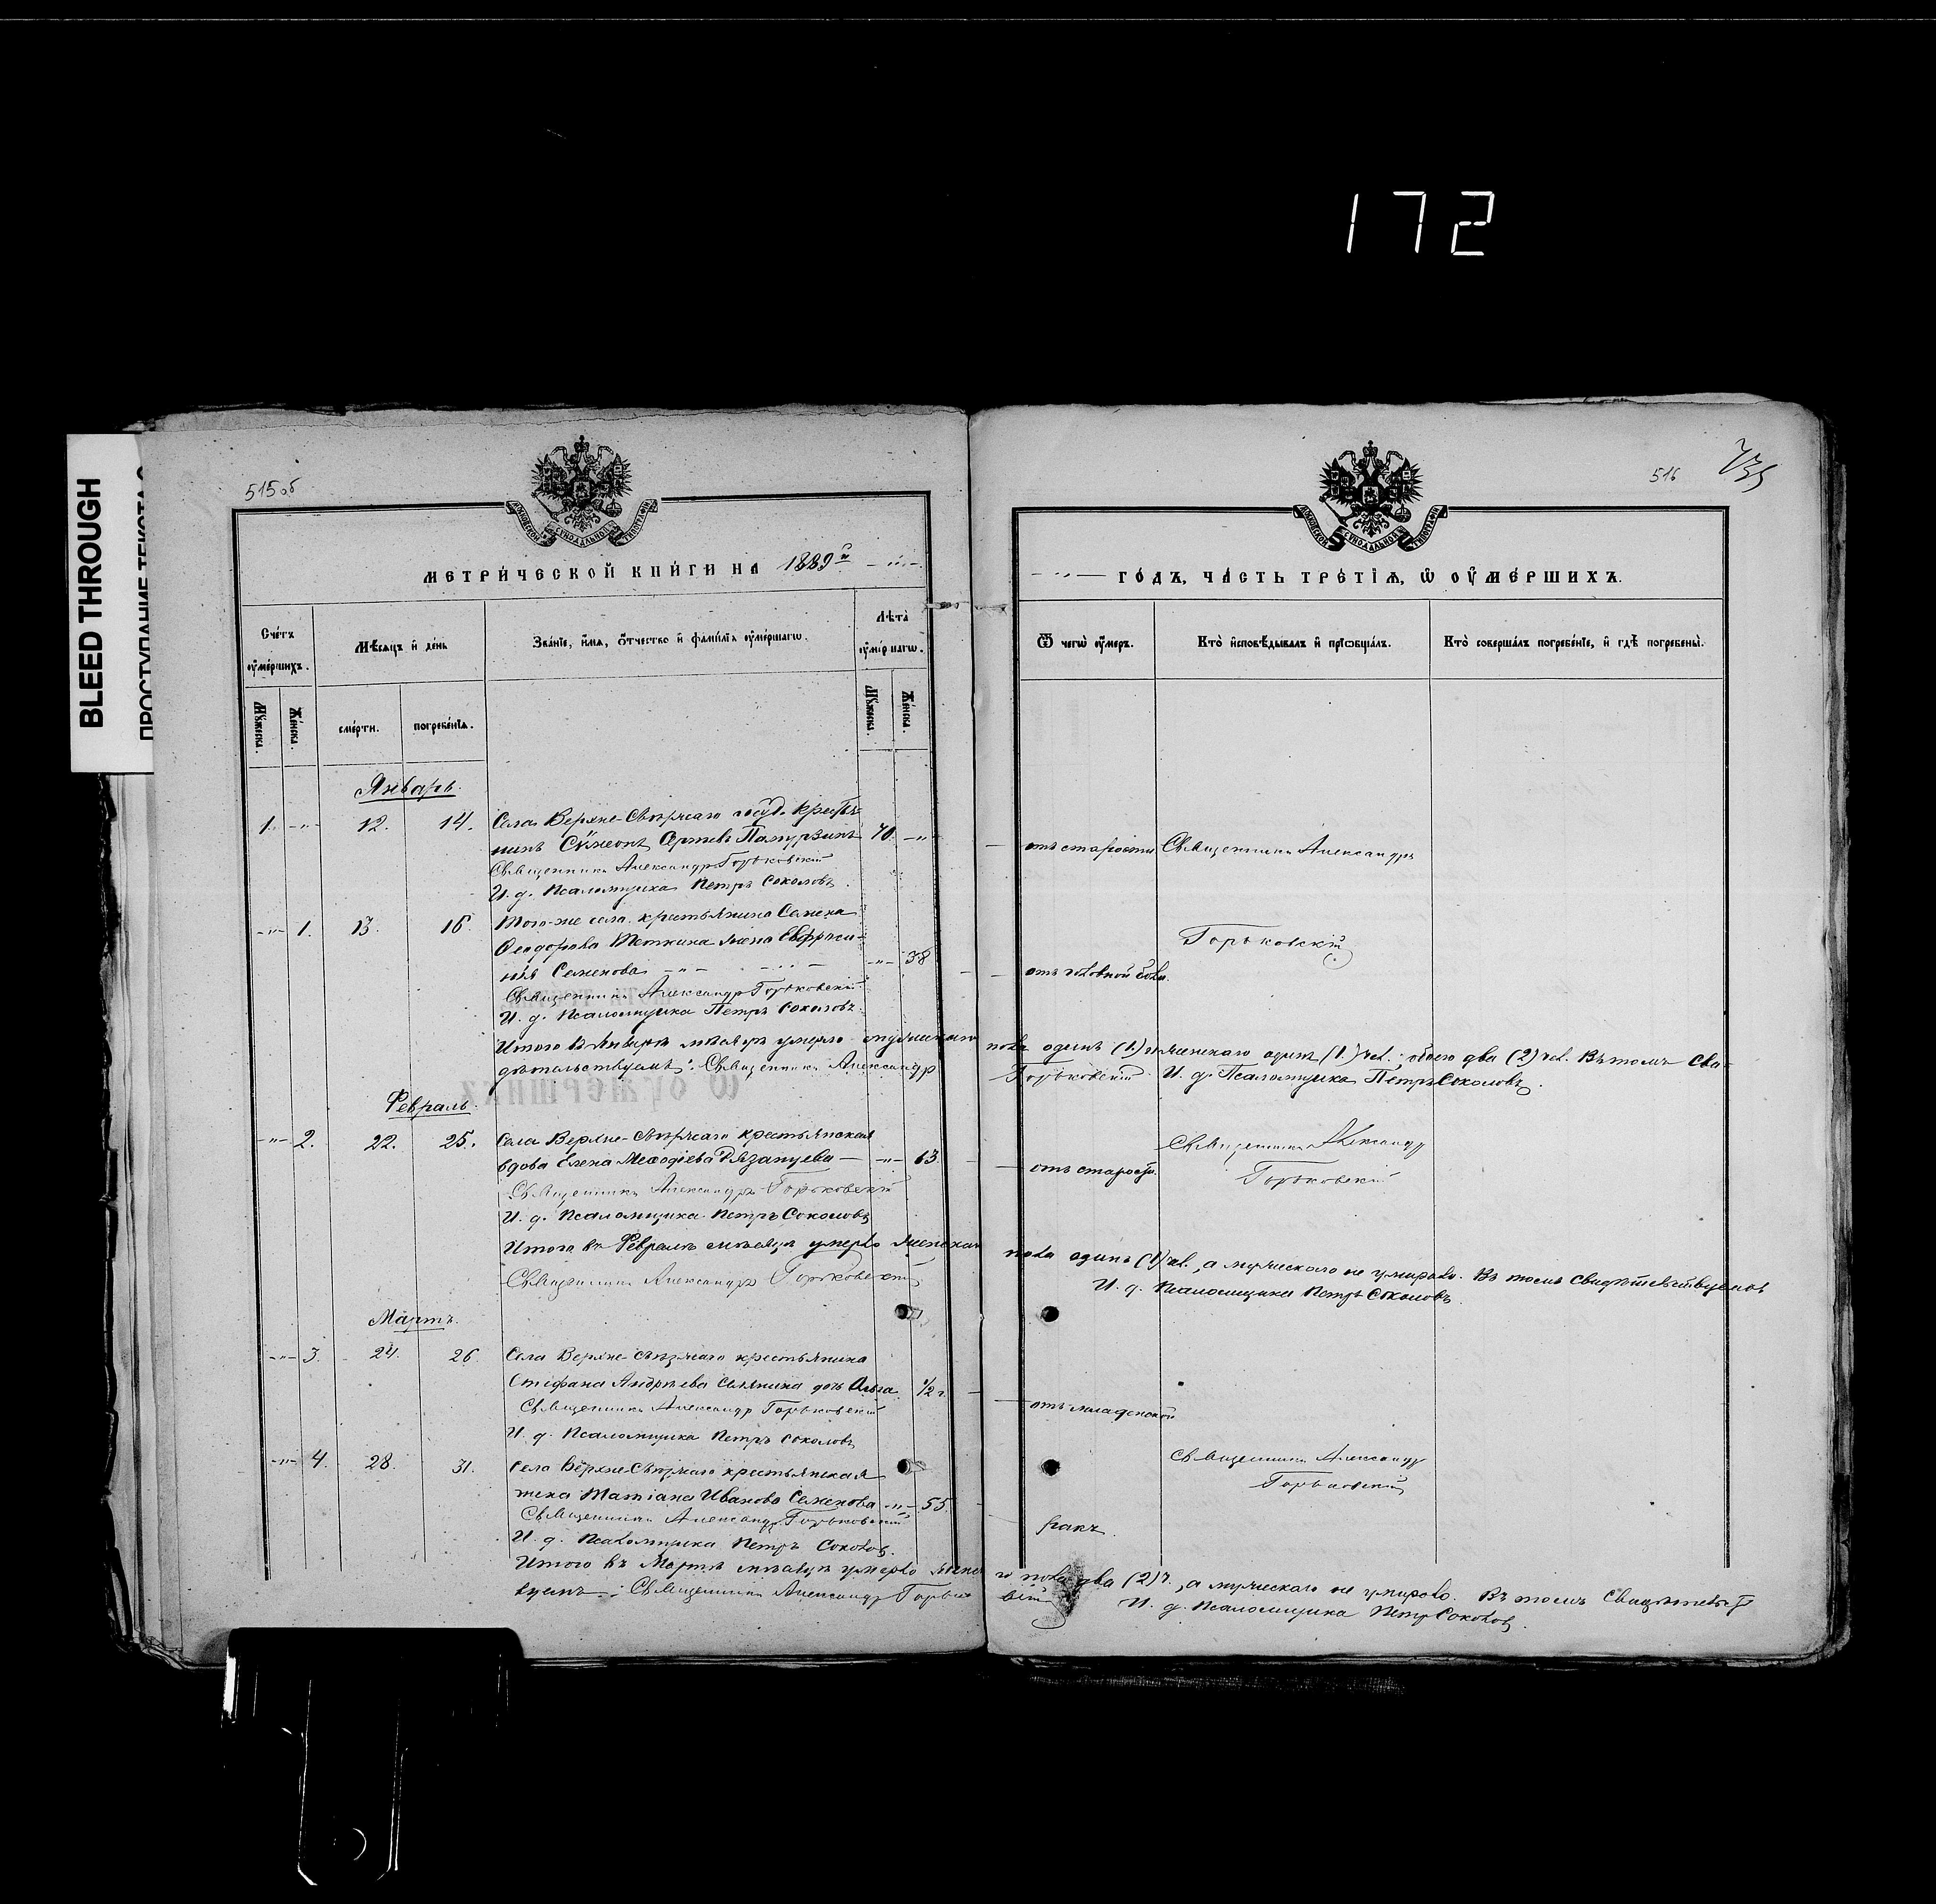 172
BLEED THROUGH
ПРОСТУПАНИЕ ТЕКСТА С
515об
МЕТРИЧЕСКОЙ КНИГИ НА 1889 й
Счетъ умершихъ.
Мѣсяцъ и день
Званіе, имя, отчество и фамилія умершагω.
Лѣта умершагω.
Мужеска.
Женска.
смерти.
погребенія.
Мужеска.
Женска.
Январь.
1. -"- 12. 14. Села Верхне- госуд. кресть-
нинъ Сѵмеонъ 70. -"-
Священникъ Александръ Горьковскій
И. д. Псаломщика Петръ Соколовъ.
-"- 1. 13. 16. Того-же села крестьянина Семена
Ѳеодорова жена Евфроси-
нія Семенова -"- -"- 38
Священникъ Александръ Горьковскій
И. д. Псаломщика Петръ Соколовъ.
Итого въ Январѣ мѣсяцѣ умерло мужескаго
дѣтельствуемъ: Священникъ Александръ
Февраль.
-"- 2. 22. 25. Села Верхне- крестьянская
вдова Елена Меѳодіева Рязанцева -"- 63.
Священникъ Александръ Горьковскій
И. д. Псаломщика Петръ Соколовъ
Итого въ Февралѣ мѣсяцѣ умерло женскаго
Священникъ Александръ Горьковскій
Мартъ.
-"- 3. 24. 26. Села Верхне- крестьянина
Стефана Андреева дочь Ольга 1/2 г.
Священникъ Александръ Горьковскій
И. д. Псаломщика Петръ Соколовъ
-"- 4. 28. 31. Села Верхне- крестьянская
жена Татіана Иванова Семенова -"- 55.
Священникъ Александръ Горьковскій
И. д. Псаломщика Петръ Соколовъ.
Итого въ Мартѣ мѣсяцѣ умерло женска
вуемъ: Священникъ Александръ Горьков
516
ГОДЪ, ЧАСТЬ ТРЕТІѦ, Ѡ УМЕРШИХЪ.
Ѿ чегω умеръ.
Кто исповѣдывалъ и пріωбщалъ.
Кто совершалъ погребеніе, и гдѣ погребены.
отъ старости Священникъ Александръ
Горьковскій
отъ головной боли.
пола одинъ (1.) и женскаго одинъ (1.) чел.; обоего два (2) чел. Въ томъ сви-
Горьковскій И. д. Псаломщика Петръ Соколовъ.
Священникъ Александръ
отъ старости. Горьковскій
пола одинъ (1) чел., а мужескаго не умирало. Въ томъ свидѣтельствуемъ
И. д. Псаломщика Петръ Соколовъ.
отъ младенской
Священникъ Александръ
Горьковскій
ракъ.
го пола два (2) ч., а мужескаго не умирало. Въ томъ свидѣтельст
скій И. д. Псаломщика Петръ Соколовъ.